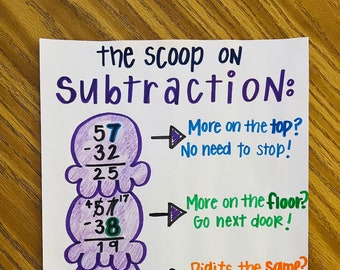 the scoop on
Subtraction:
57
-32
25
More on the top?
No need to stop!
4 57 17
-38
19
More on the floor?
Go next door!
Digits the same?